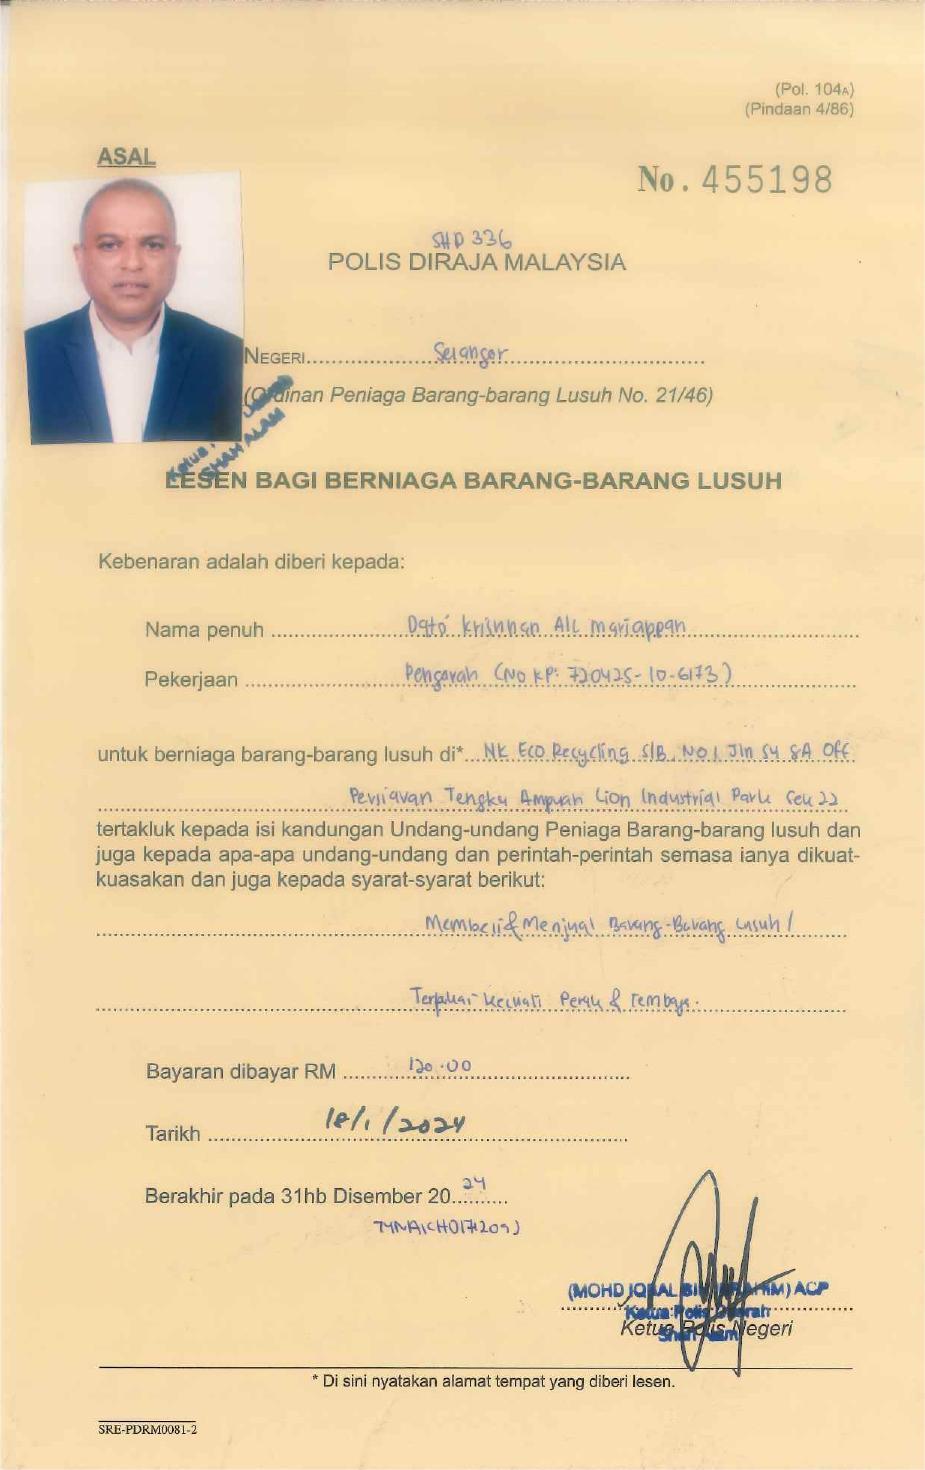 (Pol. 104A)
(Pindaan 4/86)
ASAL
No. 455198
SHD 336
POLIS DIRAJA MALAYSIA
NEGERI Selangor
(Ordinan Peniaga Barang-barang Lusuh No. 21/46)
Ketua
SHAH ALAM
LESEN BAGI BERNIAGA BARANG-BARANG LUSUH
Kebenaran adalah diberi kepada:
Nama penuh Dato' Krisnnan All Mariappan
Pekerjaan Pengarah (No KP: 720425-10-6173)
untuk berniaga barang-barang lusuh di* NK Eco Recycling S/B, No 1 Jln SU 8A Off
Persiaran Tengku Ampuan Lion Industrial Park Sek 22
tertakluk kepada isi kandungan Undang-undang Peniaga Barang-barang lusuh dan
juga kepada apa-apa undang-undang dan perintah-perintah semasa ianya dikuat-
kuasakan dan juga kepada syarat-syarat berikut:
Membeli & Menjual Barang-Barang Lusuh /
Terpakai Kecuali Perak & Tembaga.
Bayaran dibayar RM 120.00
Tarikh 18/1/2024
Berakhir pada 31hb Disember 2024
(MOHD IQBAL BIN IBRAHIM) ACP
Ketua Polis Daerah
Ketua Polis Negeri
Shah Alam
* Di sini nyatakan alamat tempat yang diberi lesen.
SRE-PDRM0081-2